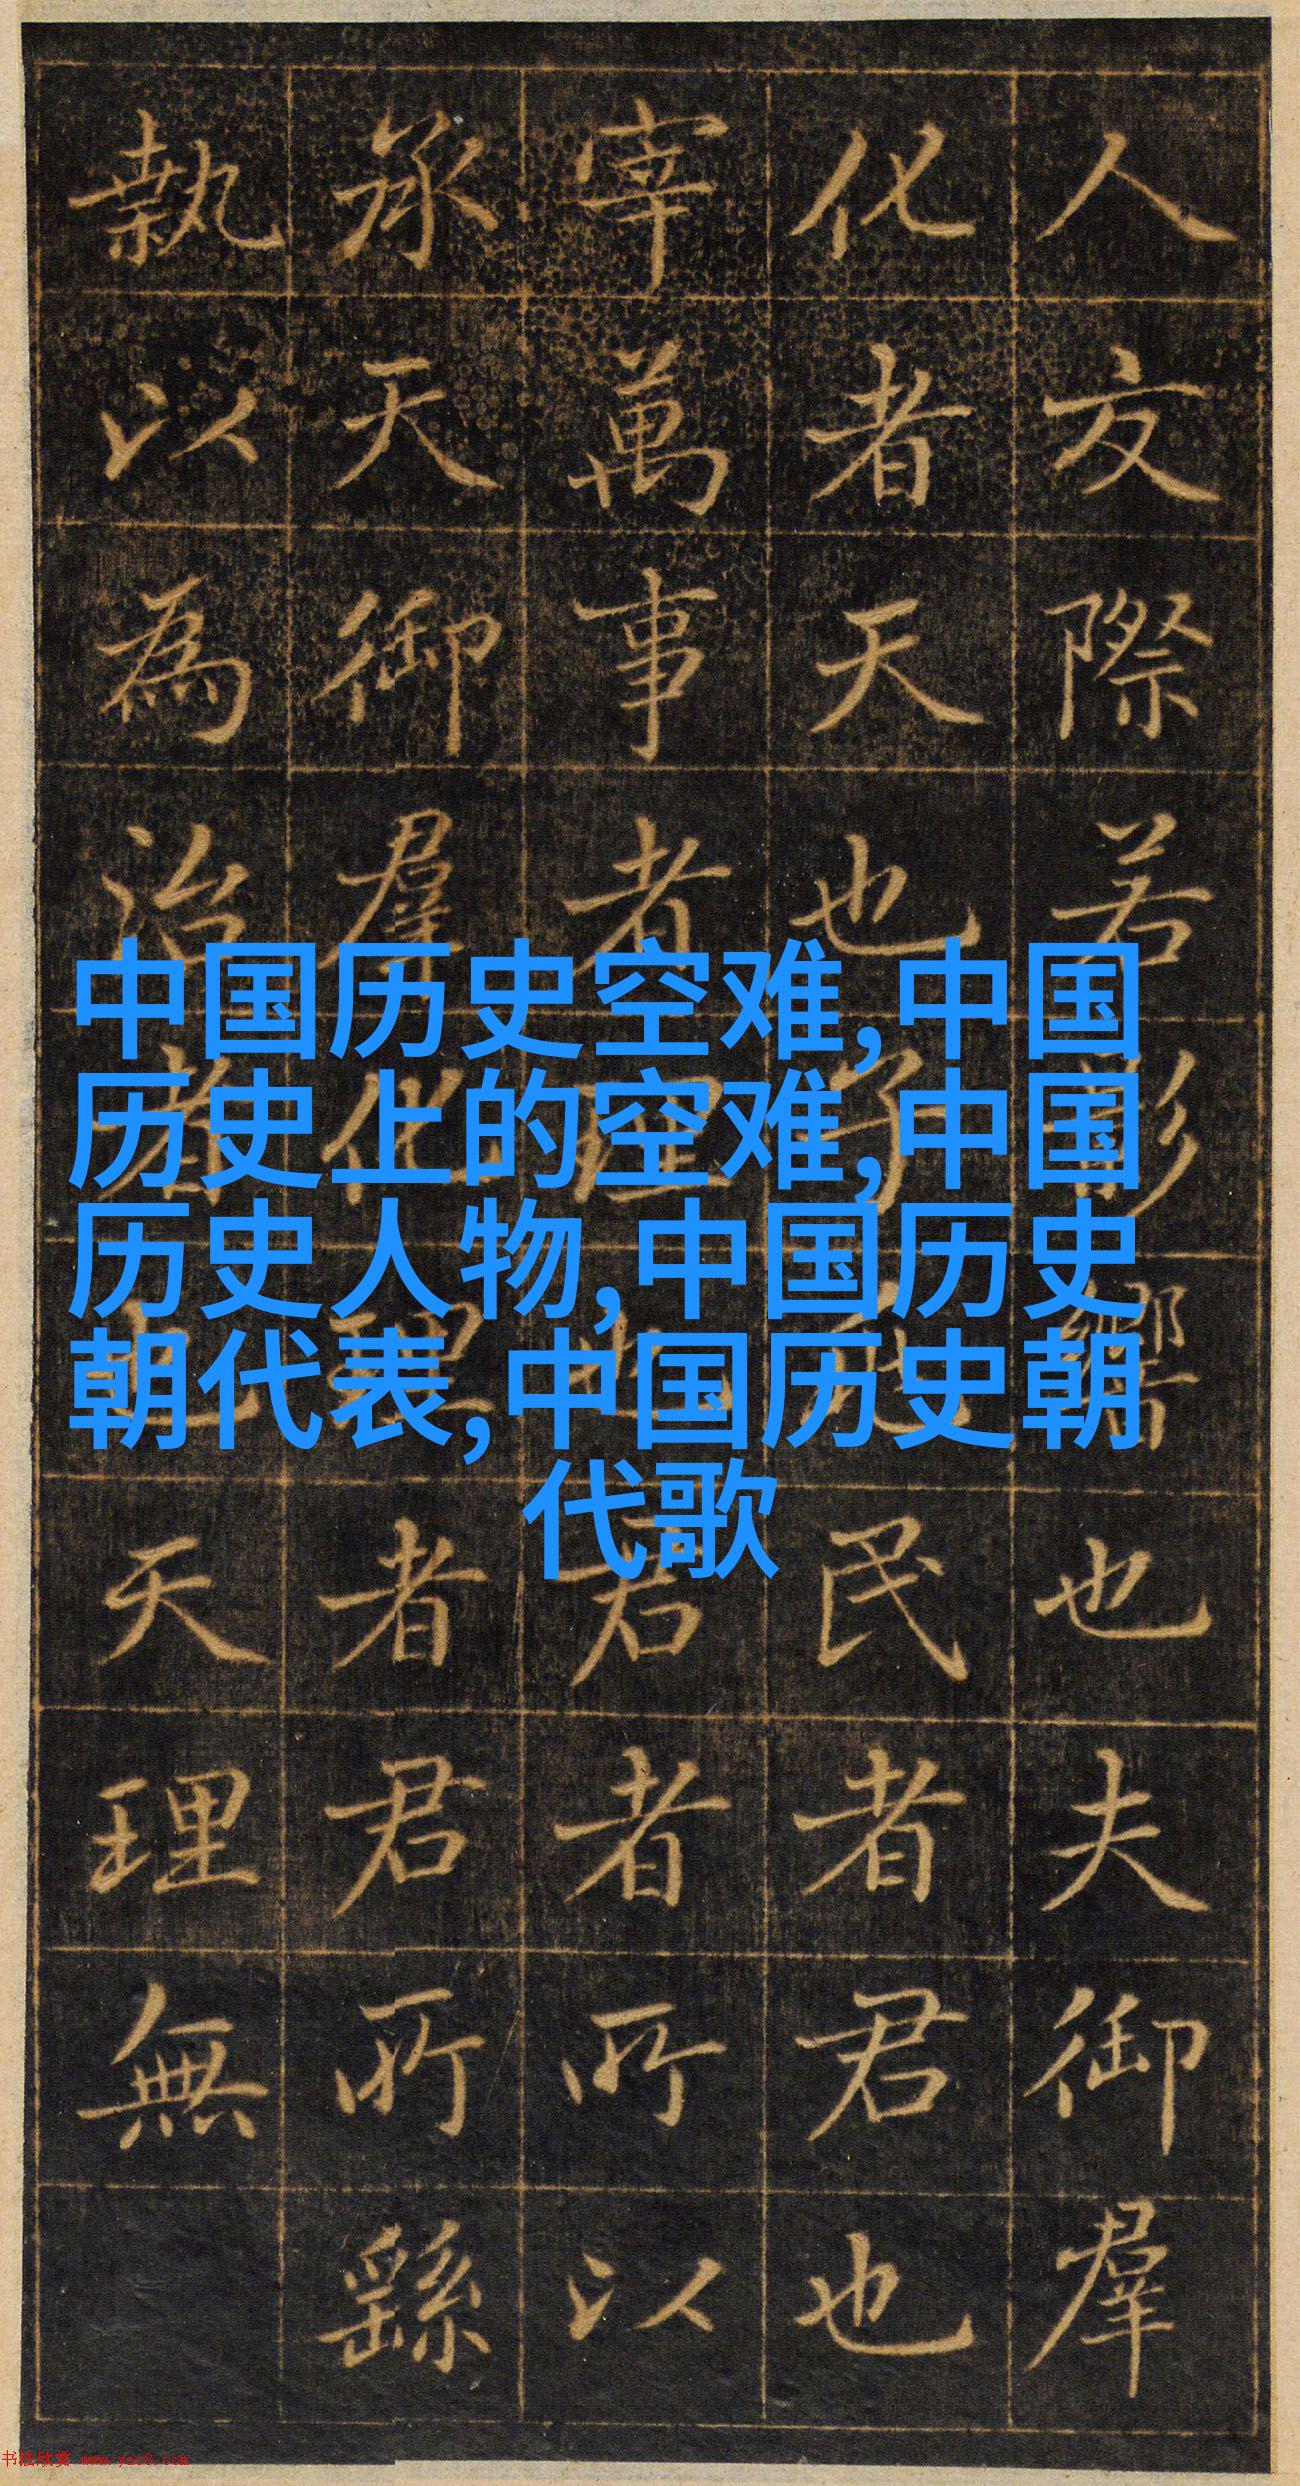 人友際若影響也夫御羣
化者天也子民者君也
宰萬事者理也君者所以
承天御羣化理者君所繇
執以為治者也天理無
中国历史空难,中国
历史上的空难,中国
历史人物,中国历史
朝代表,中国历史朝
代歌
书法欣赏 www.yac8.com